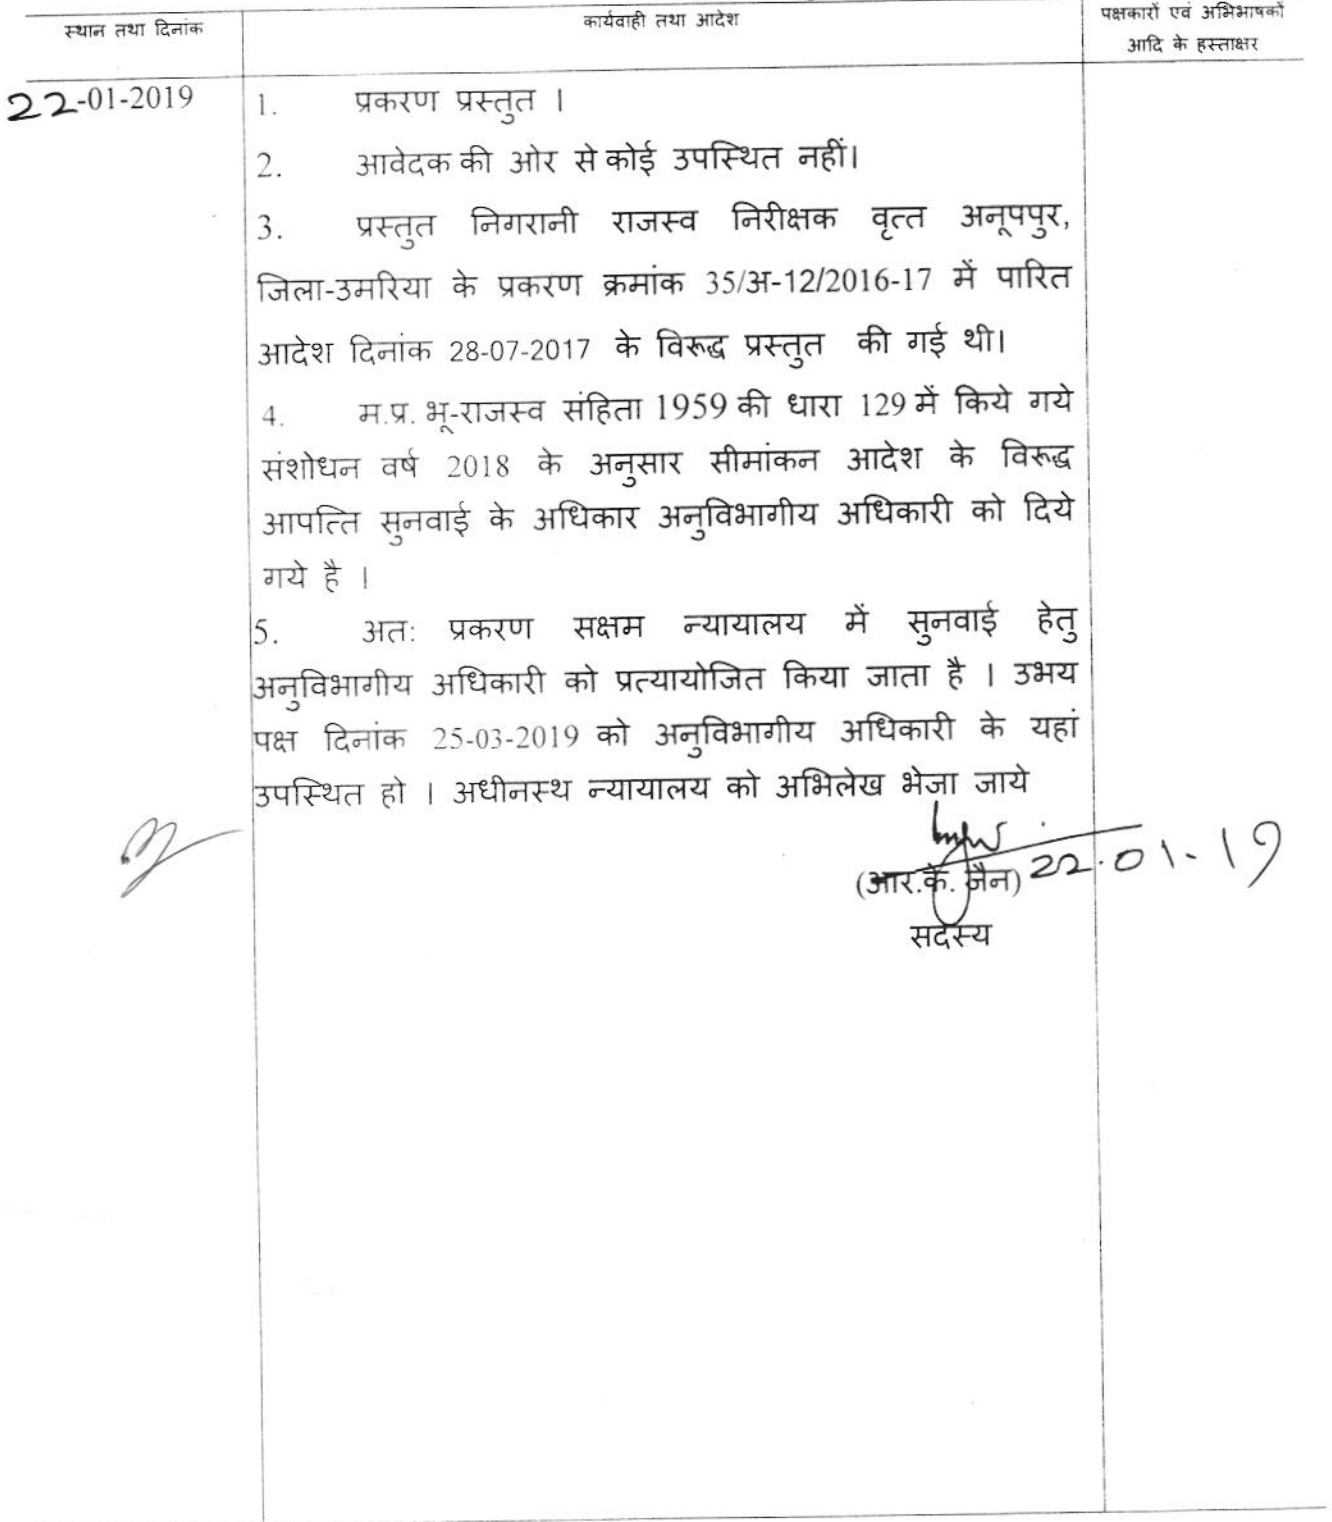 स्थान तथा दिनांक
कार्यवाही तथा आदेश
पक्षकारों एवं अभिभाषकों
आदि के हस्ताक्षर
22-01-2019
1. प्रकरण प्रस्तुत ।
2. आवेदक की ओर से कोई उपस्थित नहीं।
3. प्रस्तुत निगरानी राजस्व निरीक्षक वृत्त अनूपपुर,
जिला-उमरिया के प्रकरण क्रमांक 35/अ-12/2016-17 में पारित
आदेश दिनांक 28-07-2017 के विरूद्ध प्रस्तुत की गई थी।
4. म.प्र. भू-राजस्व संहिता 1959 की धारा 129 में किये गये
संशोधन वर्ष 2018 के अनुसार सीमांकन आदेश के विरूद्ध
आपत्ति सुनवाई के अधिकार अनुविभागीय अधिकारी को दिये
गये है ।
5. अतः प्रकरण सक्षम न्यायालय में सुनवाई हेतु
अनुविभागीय अधिकारी को प्रत्यायोजित किया जाता है । उभय
पक्ष दिनांक 25-03-2019 को अनुविभागीय अधिकारी के यहां
उपस्थित हो । अधीनस्थ न्यायालय को अभिलेख भेजा जाये
(आर.के. जैन) 22.01.19
सदस्य